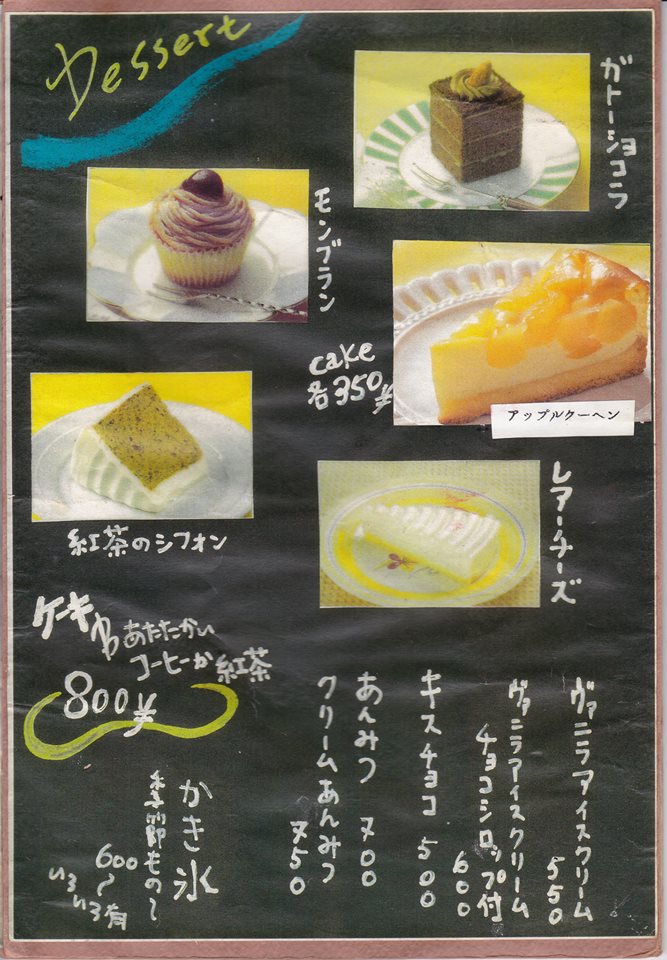 Dessert
ガトーショコラ
モンブラン
cake
各350¥
アップルクーヘン
紅茶のシフォン
レアーチーズ
ケーキ
あたたかい
コーヒーか紅茶
800¥
ヴァニラアイスクリーム
550
ヴァニラアイスクリーム
チョコシロップ付
600
キスチョコ 500
あんみつ 700
クリームあんみつ
750
かき氷
季節もの〜
600〜
いろいろ有